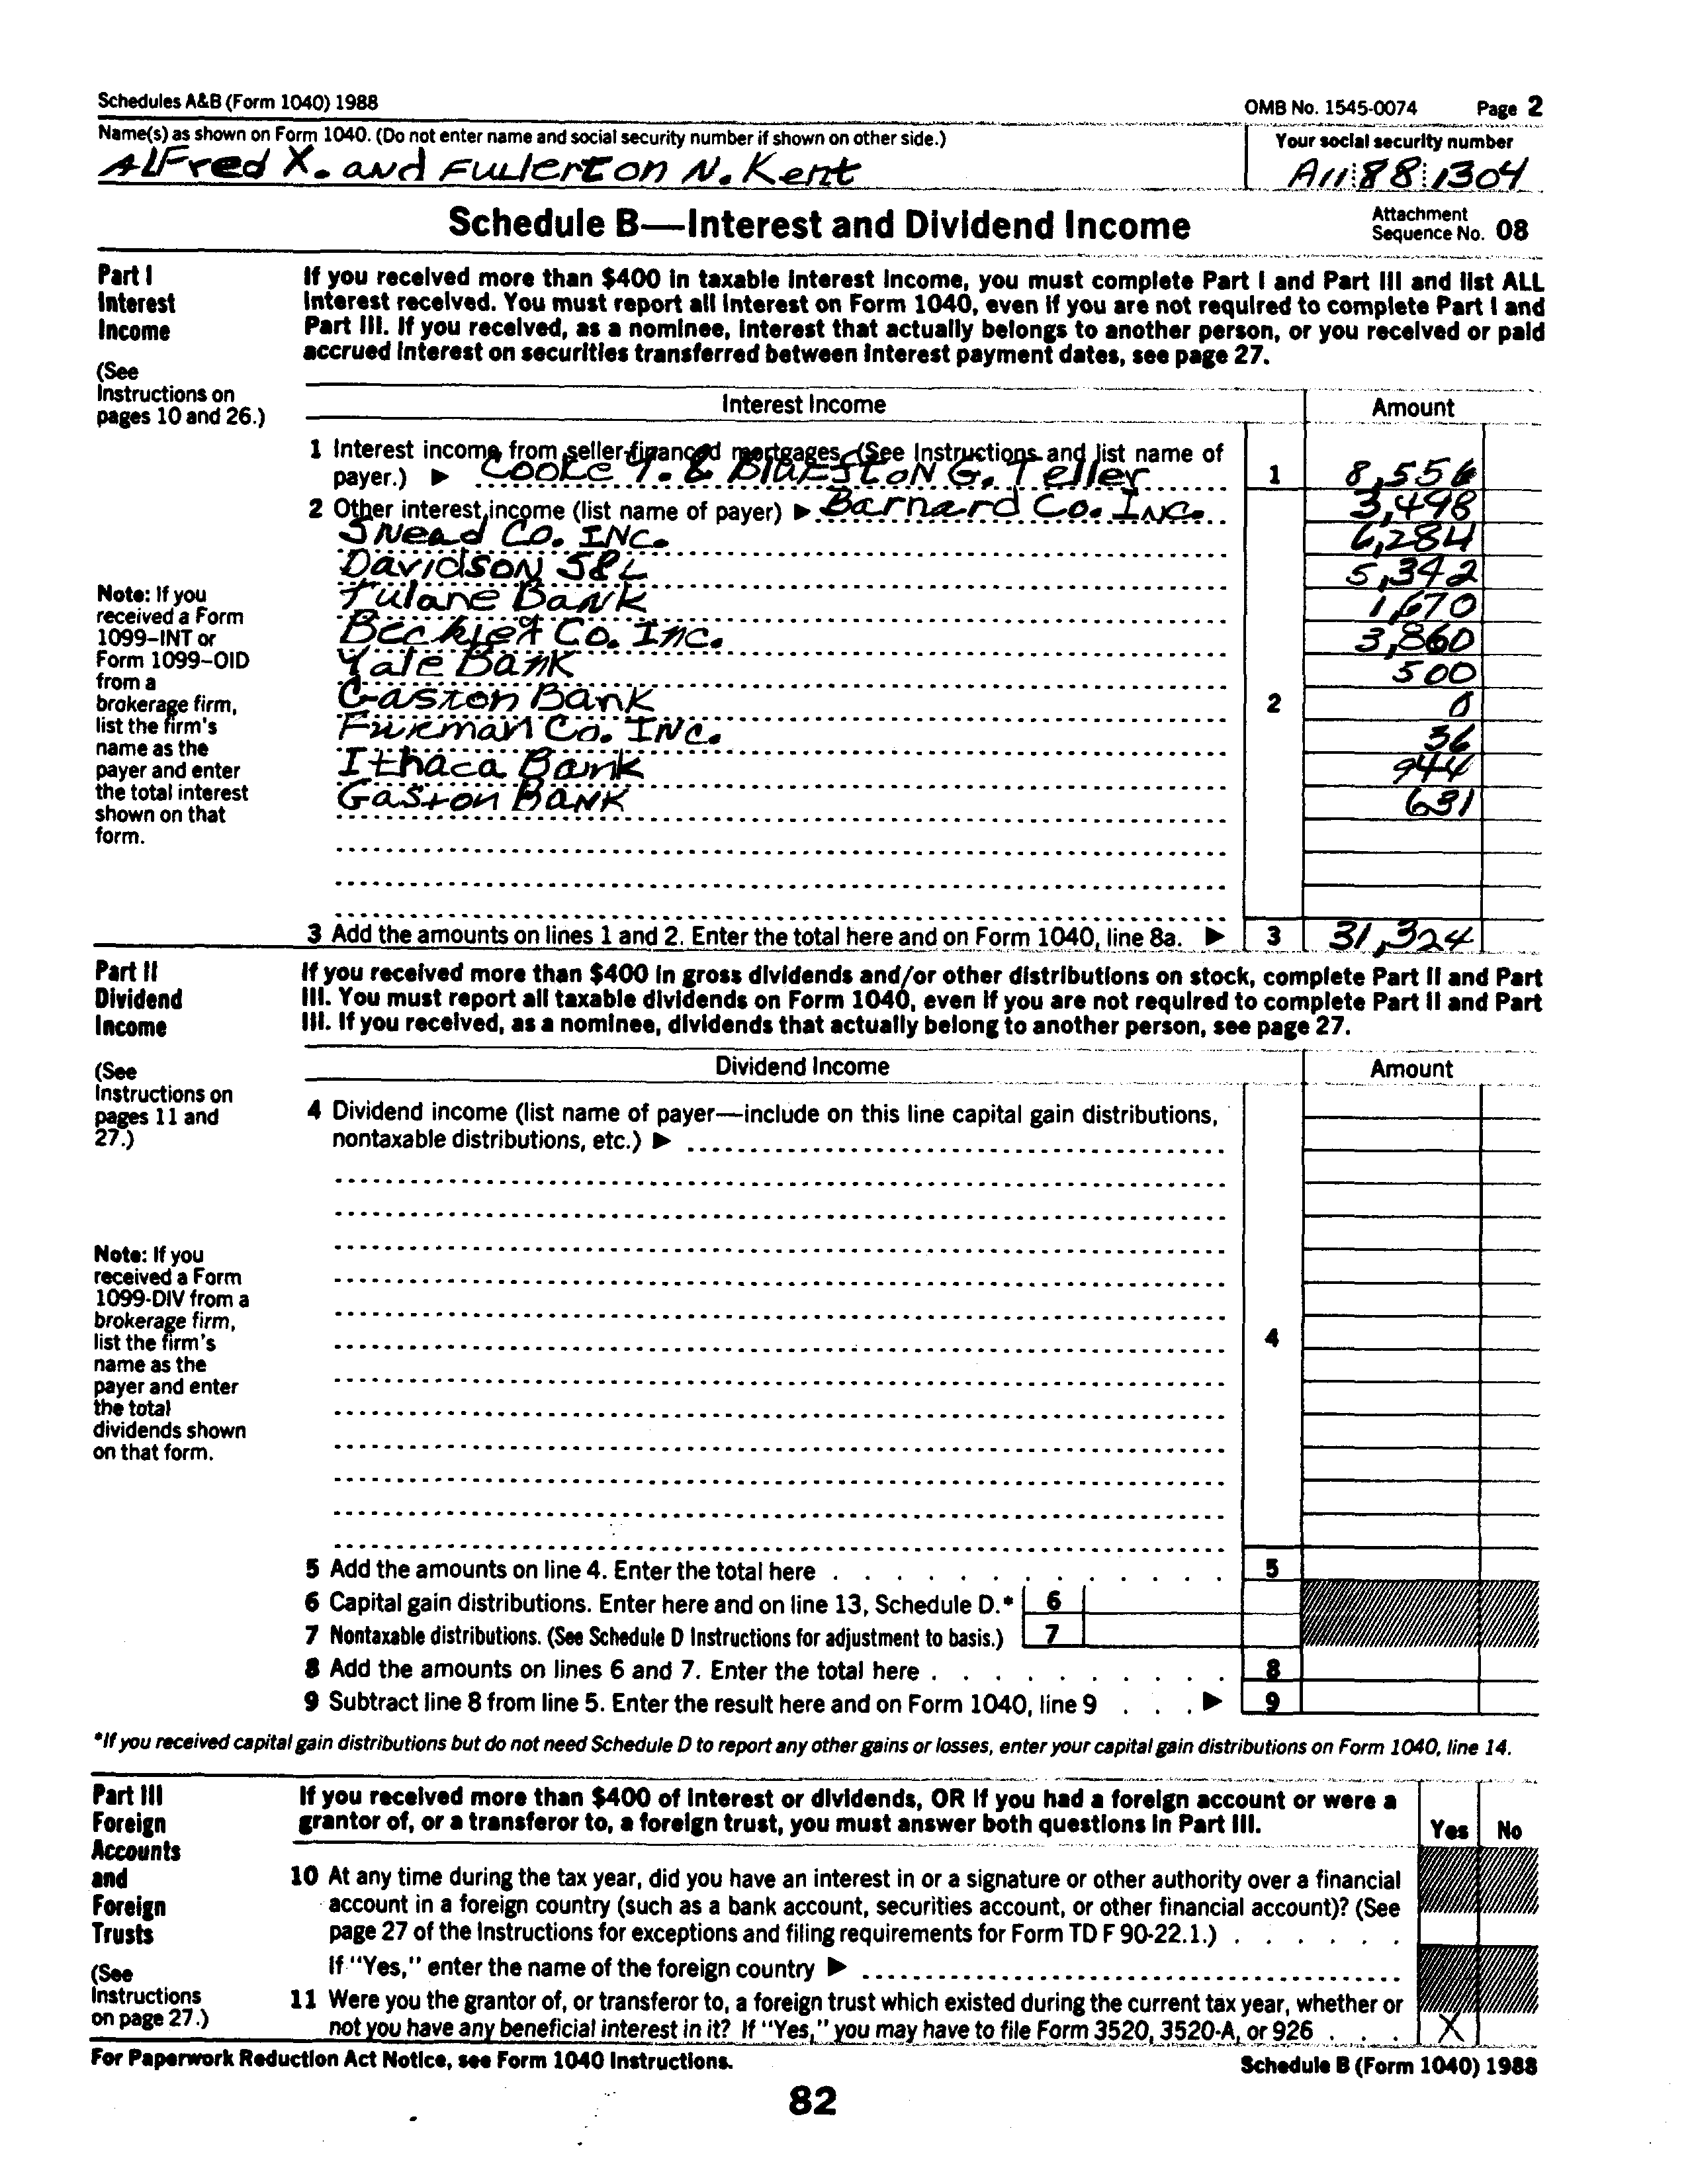 Schedules A&B (Form 1040) 1988 OMB No. 1545-0074 Page 2
Name(s) as shown on Form 1040. (Do not enter name and social security number if shown on other side.) Your social security number
ALFred X. and Fullerton N. Kent A11 88 1304
Schedule B—Interest and Dividend Income Attachment Sequence No. 08
Part I
Interest
Income
(See
Instructions on
pages 10 and 26.)
If you received more than $400 in taxable interest income, you must complete Part I and Part III and list ALL
interest received. You must report all interest on Form 1040, even if you are not required to complete Part I and
Part III. If you received, as a nominee, interest that actually belongs to another person, or you received or paid
accrued interest on securities transferred between interest payment dates, see page 27.
Interest Income Amount
1 Interest income from seller-financed mortgages. (See Instructions and list name of
payer.) ▶ Cooke T. & G. Teller 1 8,556
2 Other interest income (list name of payer) ▶ Barnard Co. Inc. 3,498
SNead CO. INC. 6,284
Davidson S&L 5,342
Tulane Bank 1,670
Co. Inc. 3,860
Yale Bank 500
Gaston Bank 2 0
Furman Co. INC. 36
Ithaca Bank 944
Gaston BANK 631
Note: If you
received a Form
1099–INT or
Form 1099–OID
from a
brokerage firm,
list the firm's
name as the
payer and enter
the total interest
shown on that
form.
3 Add the amounts on lines 1 and 2. Enter the total here and on Form 1040, line 8a. ▶ 3 31,324
Part II
Dividend
Income
(See
Instructions on
pages 11 and
27.)
If you received more than $400 in gross dividends and/or other distributions on stock, complete Part II and Part
III. You must report all taxable dividends on Form 1040, even if you are not required to complete Part II and Part
III. If you received, as a nominee, dividends that actually belong to another person, see page 27.
Dividend Income Amount
4 Dividend income (list name of payer—include on this line capital gain distributions,
nontaxable distributions, etc.) ▶
4
Note: If you
received a Form
1099-DIV from a
brokerage firm,
list the firm's
name as the
payer and enter
the total
dividends shown
on that form.
5 Add the amounts on line 4. Enter the total here 5
6 Capital gain distributions. Enter here and on line 13, Schedule D.* 6
7 Nontaxable distributions. (See Schedule D Instructions for adjustment to basis.) 7
8 Add the amounts on lines 6 and 7. Enter the total here 8
9 Subtract line 8 from line 5. Enter the result here and on Form 1040, line 9 ▶ 9
*If you received capital gain distributions but do not need Schedule D to report any other gains or losses, enter your capital gain distributions on Form 1040, line 14.
Part III
Foreign
Accounts
and
Foreign
Trusts
(See
Instructions
on page 27.)
If you received more than $400 of interest or dividends, OR if you had a foreign account or were a
grantor of, or a transferor to, a foreign trust, you must answer both questions in Part III. Yes No
10 At any time during the tax year, did you have an interest in or a signature or other authority over a financial
account in a foreign country (such as a bank account, securities account, or other financial account)? (See
page 27 of the Instructions for exceptions and filing requirements for Form TD F 90-22.1.)
If "Yes," enter the name of the foreign country ▶
11 Were you the grantor of, or transferor to, a foreign trust which existed during the current tax year, whether or
not you have any beneficial interest in it? If "Yes," you may have to file Form 3520, 3520-A, or 926 X
For Paperwork Reduction Act Notice, see Form 1040 Instructions. Schedule B (Form 1040) 1988
82